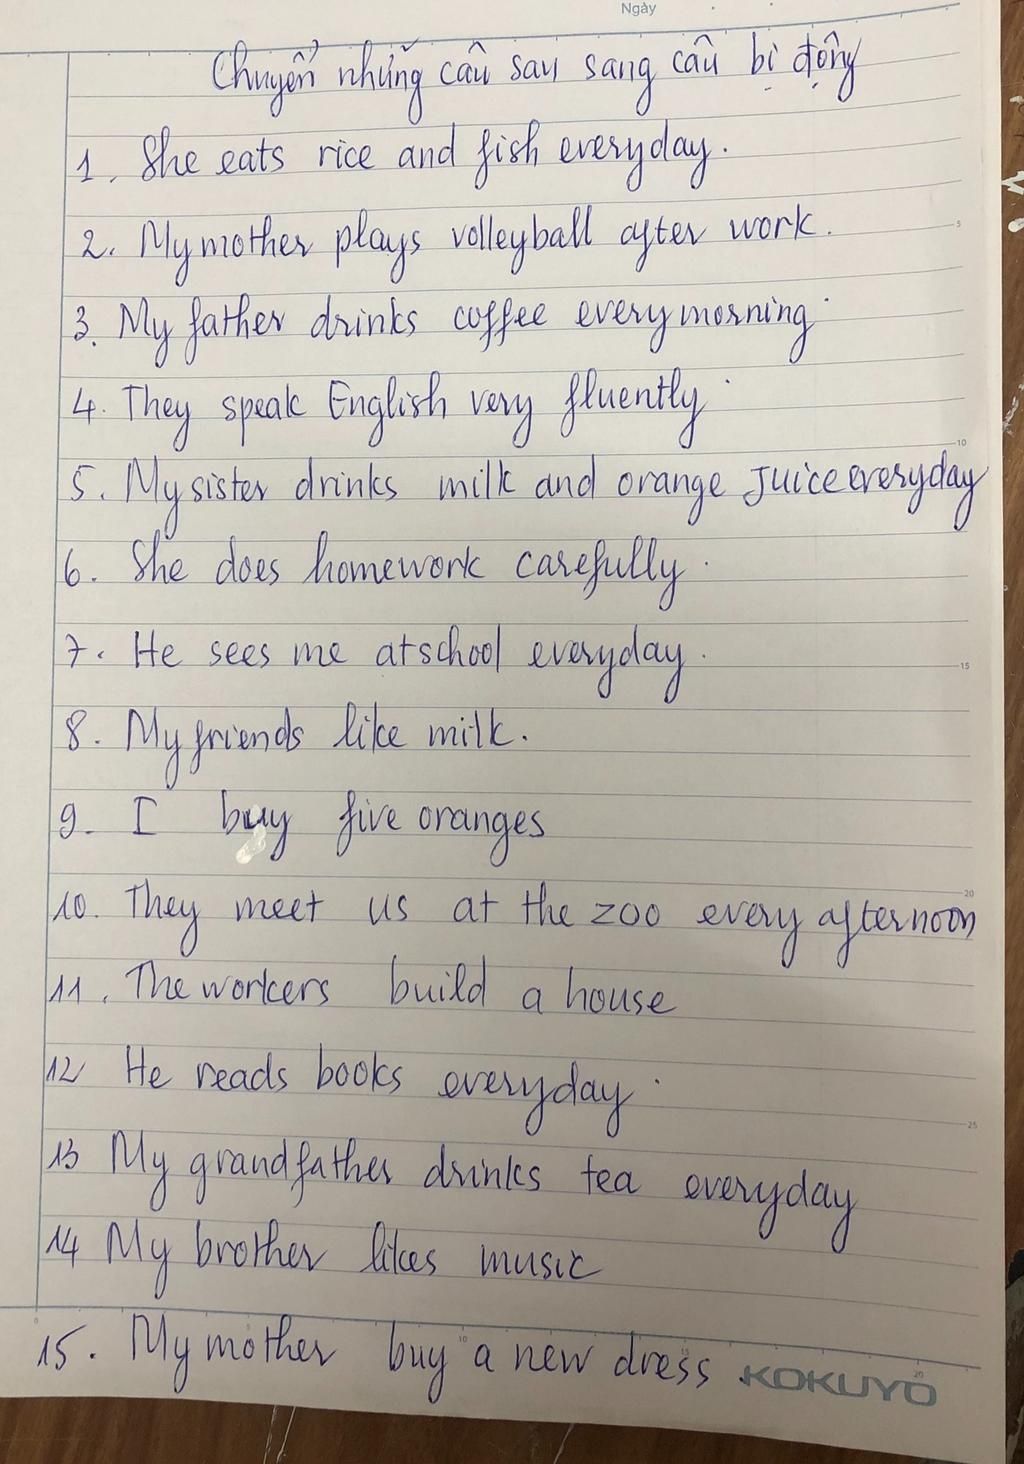 Ngày
Chuyển những câu sau sang câu bị động
1. She eats rice and fish everyday.
2. My mother plays volleyball after work.
3. My father drinks coffee every morning.
4. They speak English very fluently.
5. My sister drinks milk and orange Juice everyday
6. She does homework carefully.
7. He sees me at school everyday.
8. My friends like milk.
9. I buy five oranges
10. They meet us at the zoo every afternoon
11. The workers build a house
12 He reads books everyday.
13 My grandfather drinks tea everyday
14 My brother likes music
15. My mother buy a new dress
KOKUYO